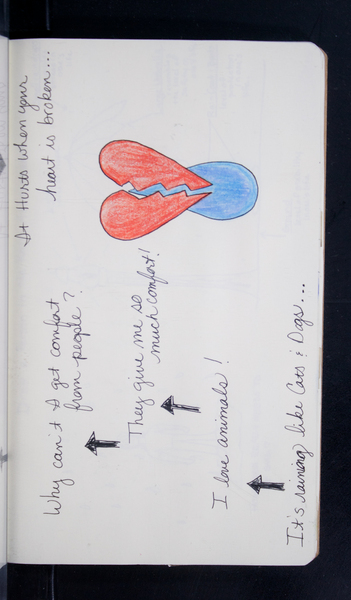 It Hurts when your
heart is broken...
Why can't I get comfort
from people?
They give me so
much comfort!
I love animals!
It's raining like Cats & Dogs...